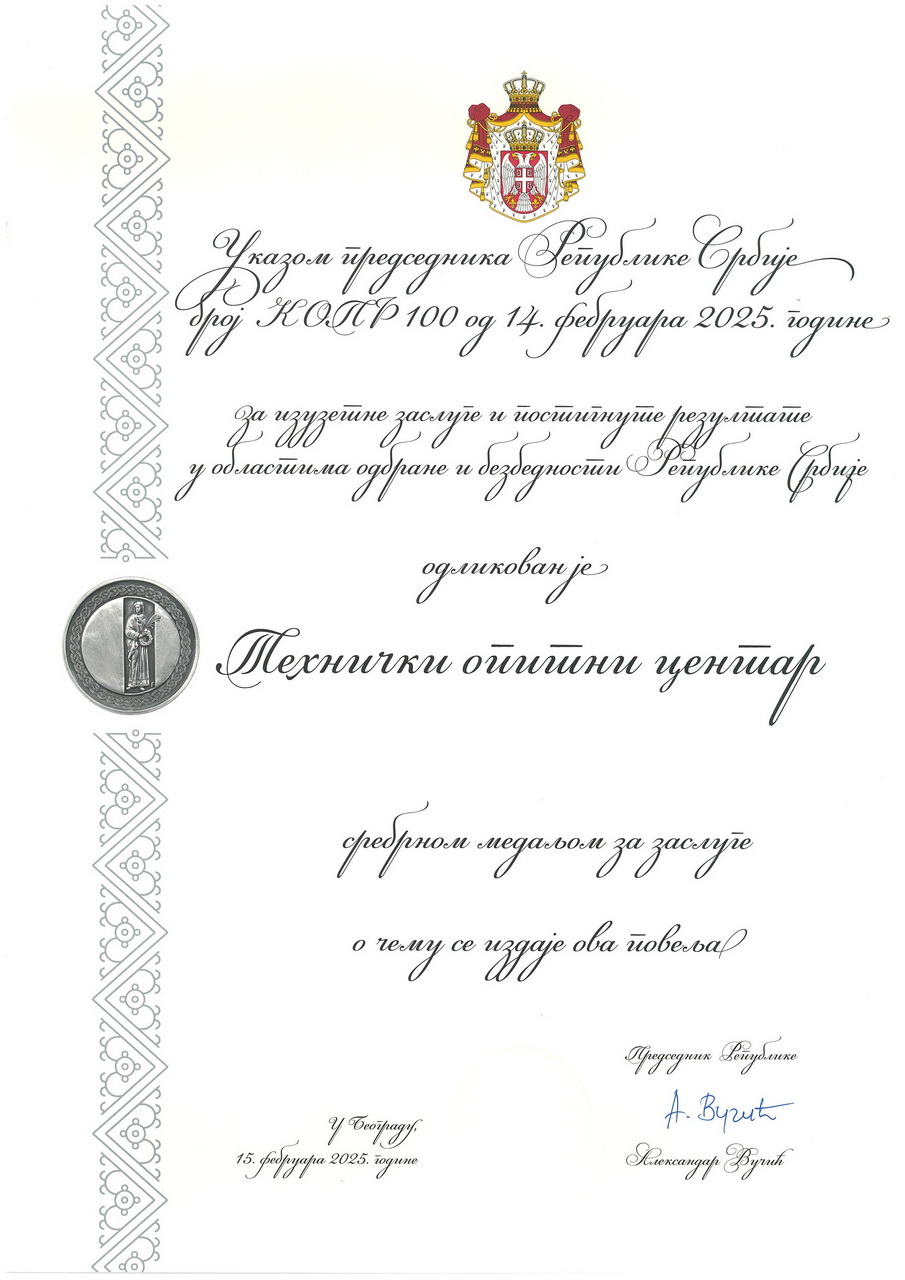 Указом председника Републике Србије
број КОПР 100 од 14. фебруара 2025. године
за изузетне заслуге и постигнуте резултате
у областима одбране и безбедности Републике Србије
одликован је
Технички опитни центар
сребрном медаљом за заслуге
о чему се издаје ова повеља
Председник Републике
А. Вучић
Александар Вучић
У Београду,
15. фебруара 2025. године